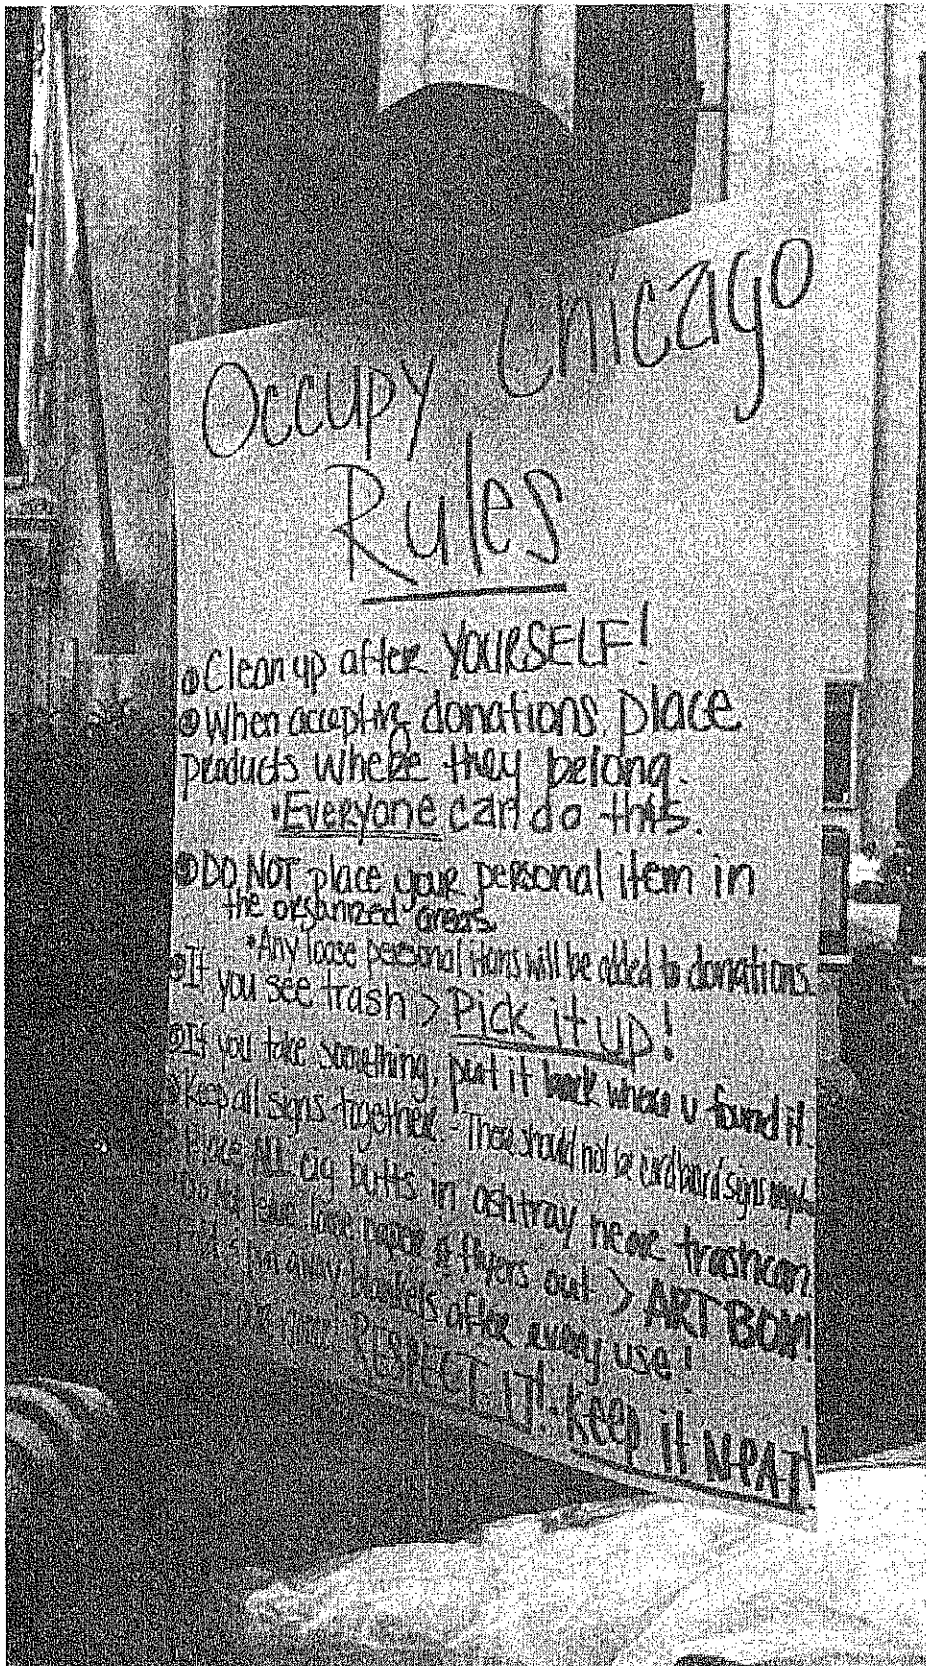 Occupy Chicago
Rules
Clean up after YOURSELF!
When accepting donations, place
products where they belong.
Everyone can do this.
DO NOT place your personal item in
the organized areas.
Any loose personal items will be added to donations.
If you see trash > Pick it up!
If you take something, put it back where u found it.
Keep all signs together. - There should not be cardboard signs
ALL cig butts in ashtray near trashcan
loose paper & flyers out > ART BOX!
away after every use!
RESPECT IT! - Keep it N-EA-T!